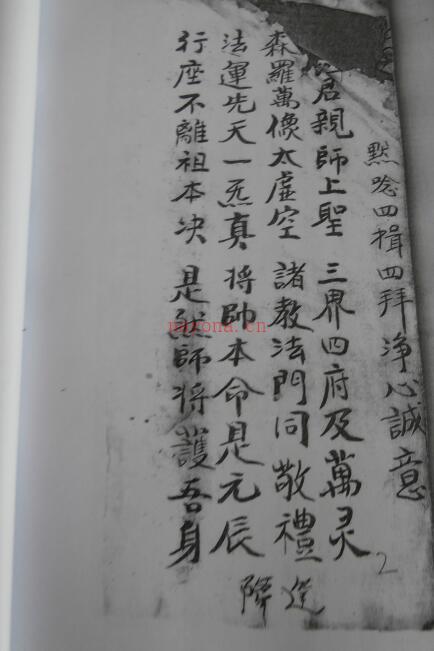 默唸四揖四拜 淨心誠意
君親師上聖 三界四府及萬灵
森羅萬像太虛空 諸教法門同敬禮
法運先天一炁真 將帥本命是元辰
行座不離祖本决 是然師將護吾身
2
nayona.cn